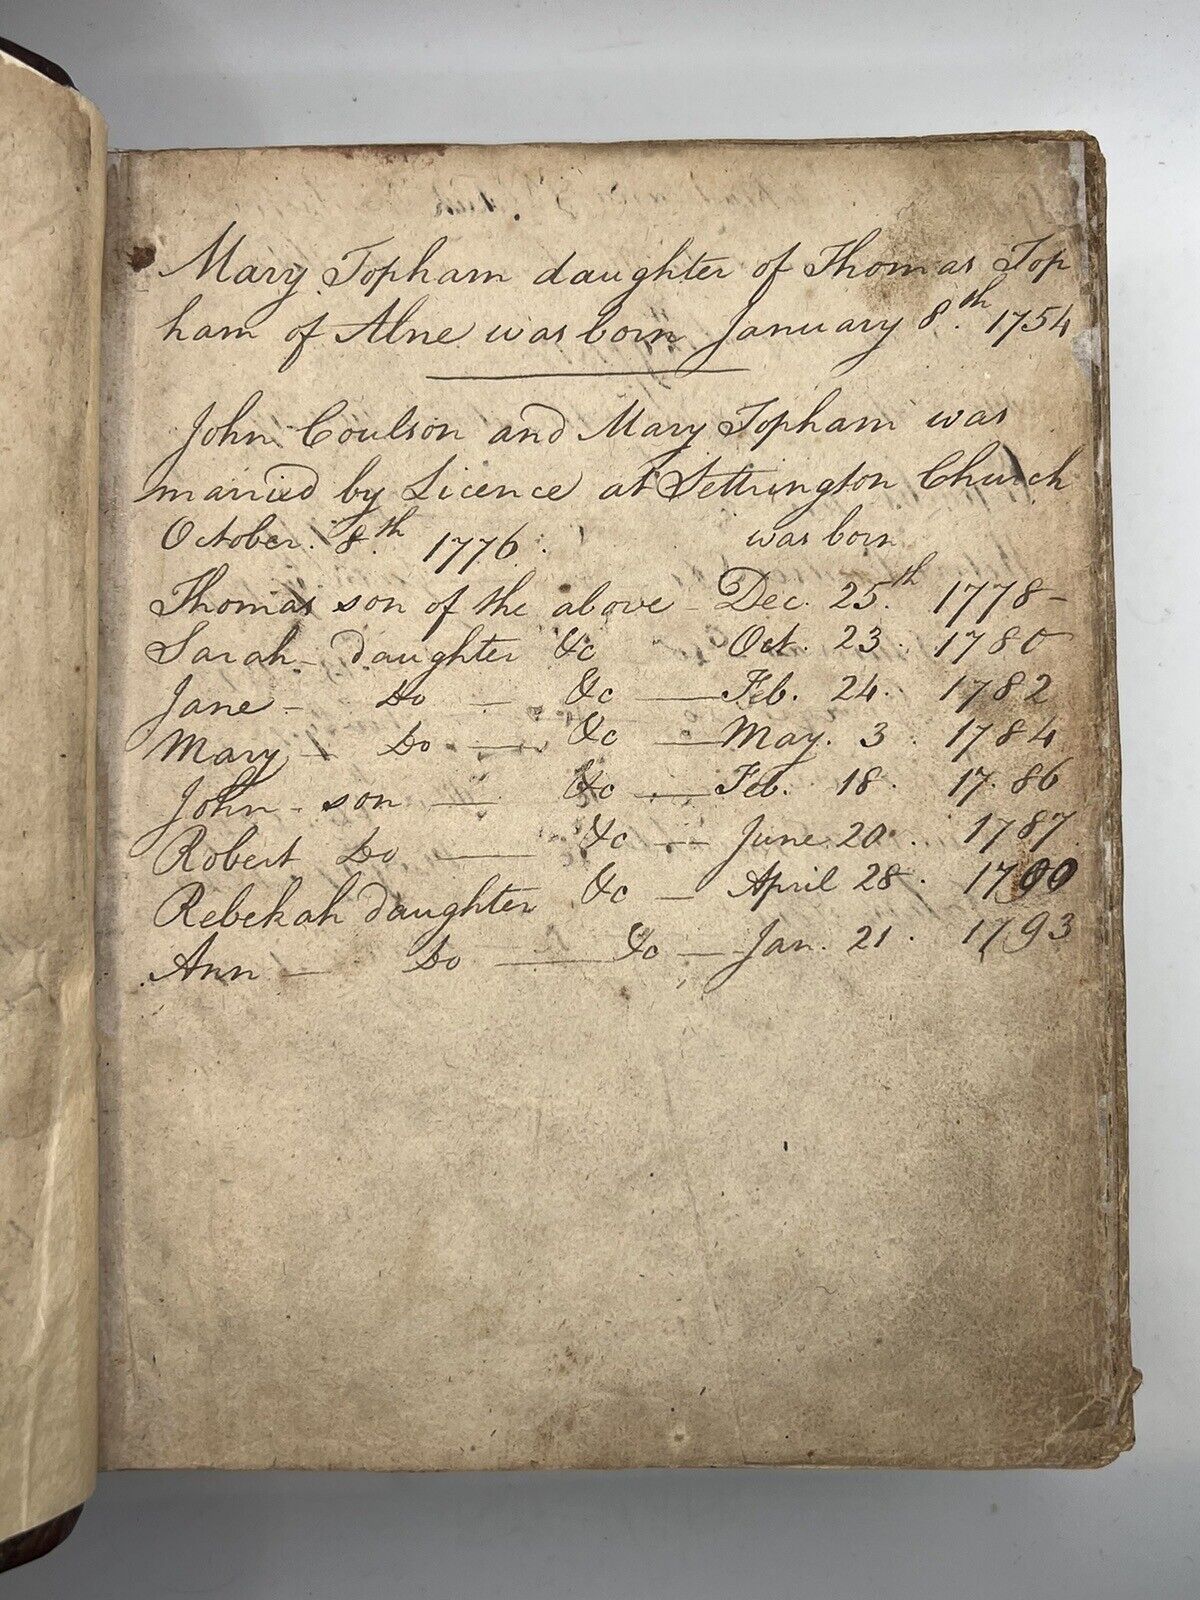 Mary Topham daughter of Thomas Top
ham of Alne was born January 8.th 1754
John Coulson and Mary Topham was
married by Licence at Settrington Church
October. 8.th 1776. was born
Thomas son of the above - Dec. 25.th 1778-
Sarah - daughter &c Oct. 23. 1780
Jane - Do - &c - Feb. 24. 1782
Mary - Do - &c - May. 3. 1784
John - son - &c - Feb. 18. 17.86
Robert Do - &c - June 20. 1787.
Rebekah daughter &c - April 28. 1790
Ann - Do - &c - Jan. 21. 1793